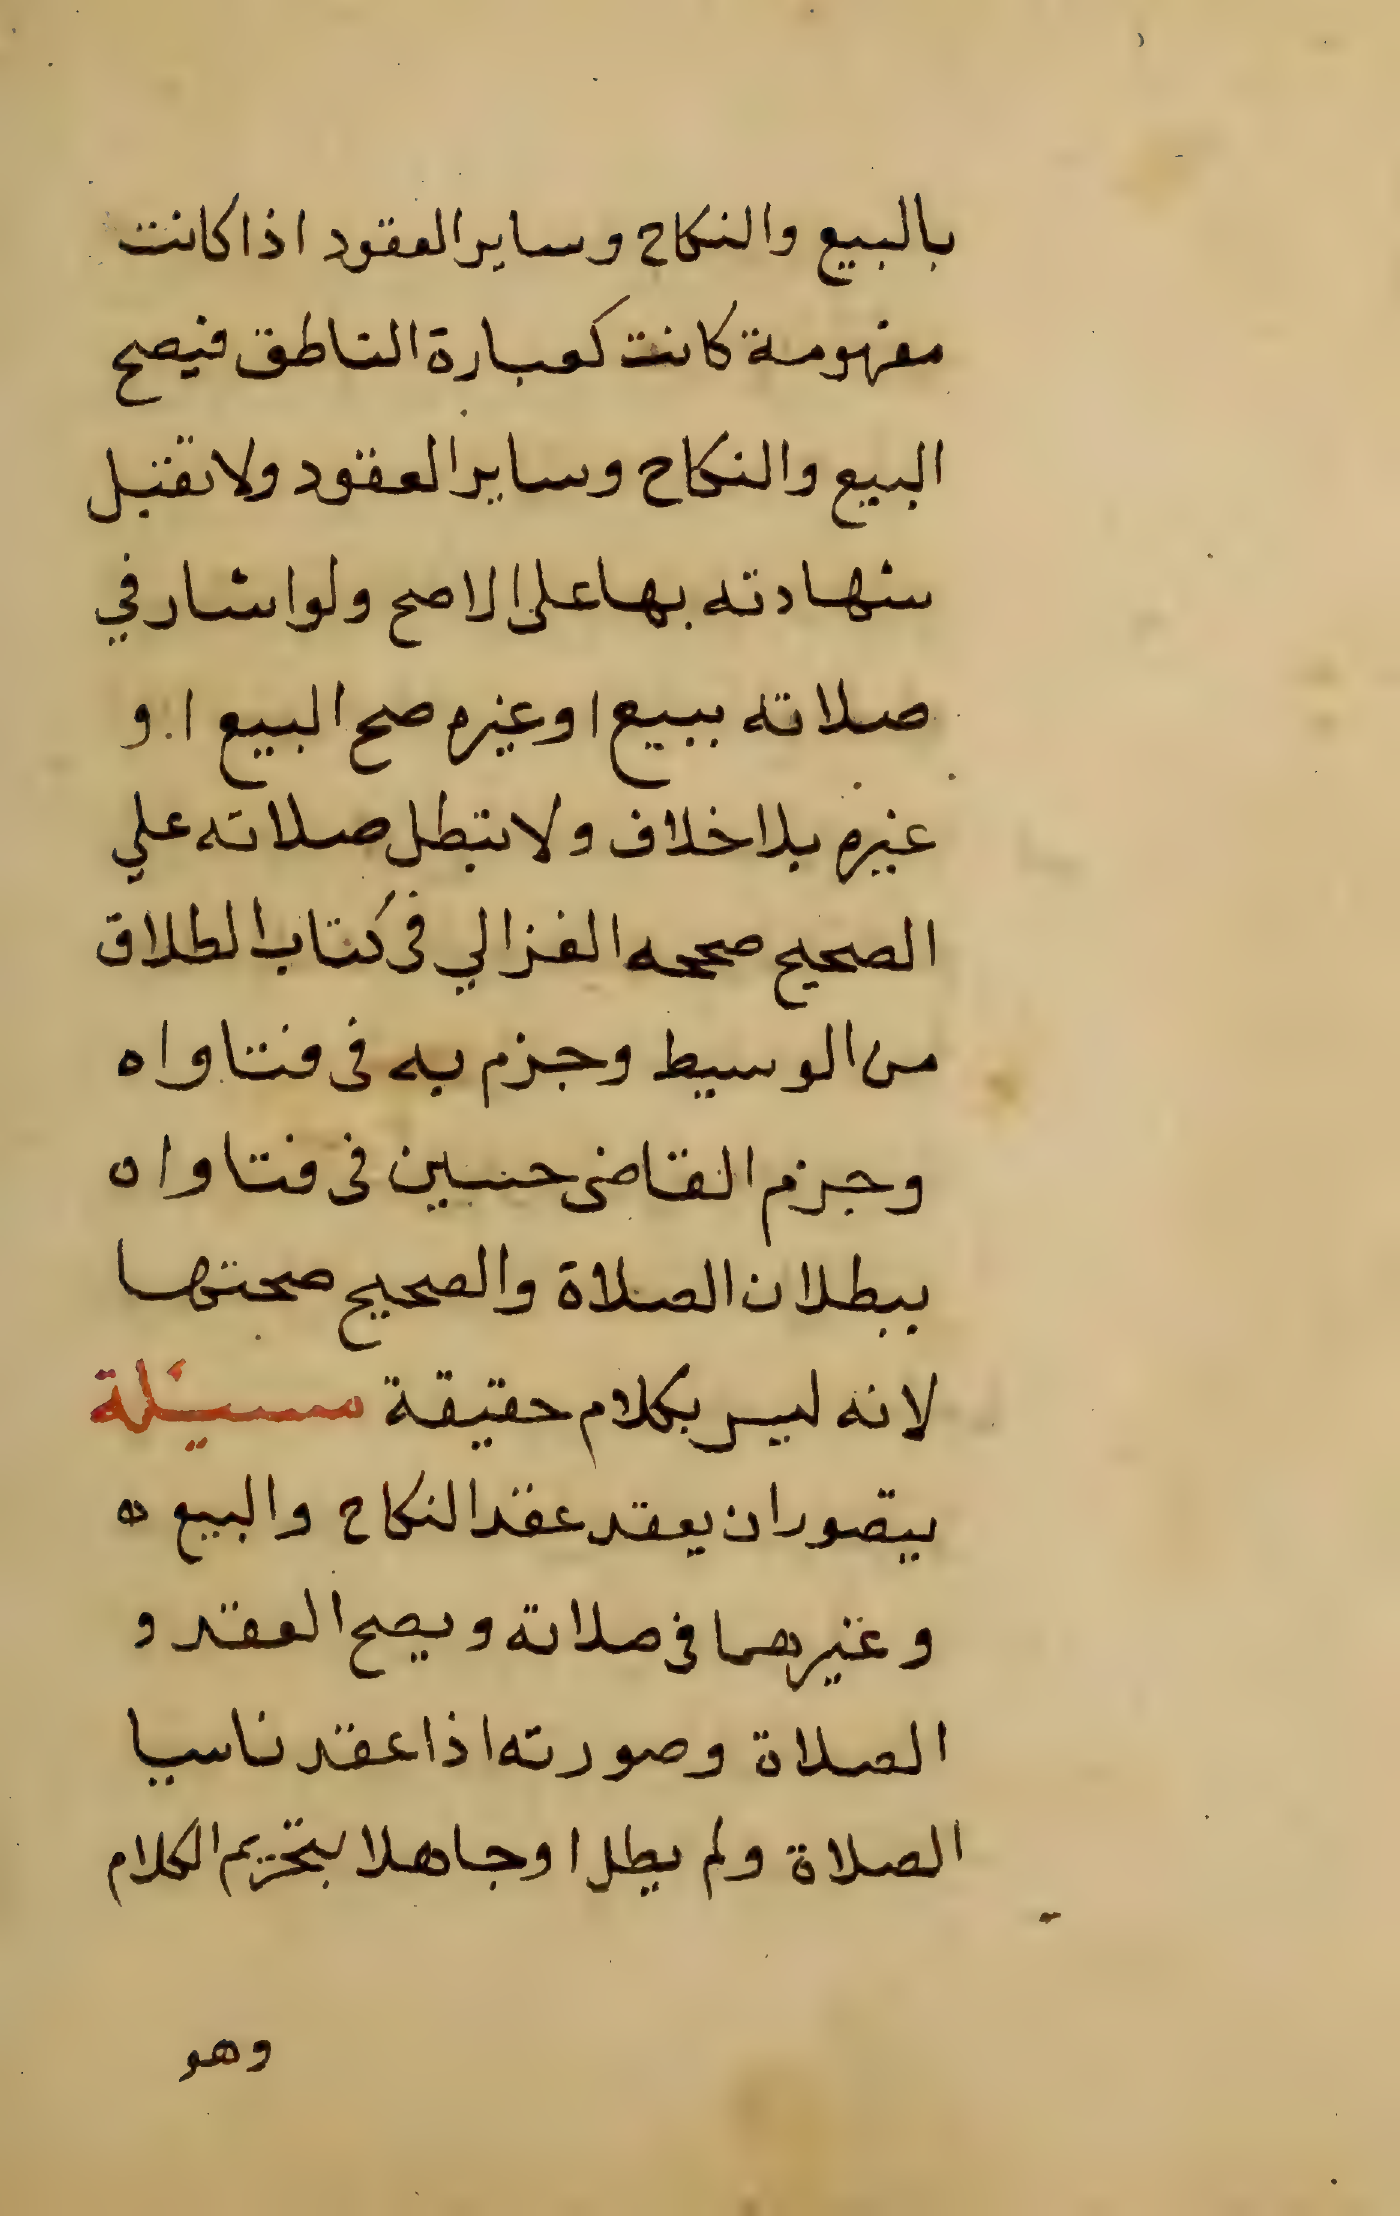 بالبيع والنكاح وساير العقود اذا كانت
مفهومة كانت كعبارة الناطق فيصح
البيع والنكاح وساير العقود ولا تقبل
شهادته بها على الاصح ولو اشار في
صلاته ببيع او غيره صح البيع او
غيره بلا خلاف ولا تبطل صلاته علي
الصحيح صححه الغزالي في كتاب الطلاق
من الوسيط وجزم به في فتاواه
وجزم القاضي حسين في فتاواه
ببطلان الصلاة والصحيح صحتها
لانه ليس بكلام حقيقة مسيئلة
يتصور ان يعقد عقد النكاح والبيع ه
وغيرهما في صلاته ويصح العقد و
الصلاة وصورته اذا عقد ناسيا
الصلاة ولم يطل او جاهلا بتحريم الكلام
وهو